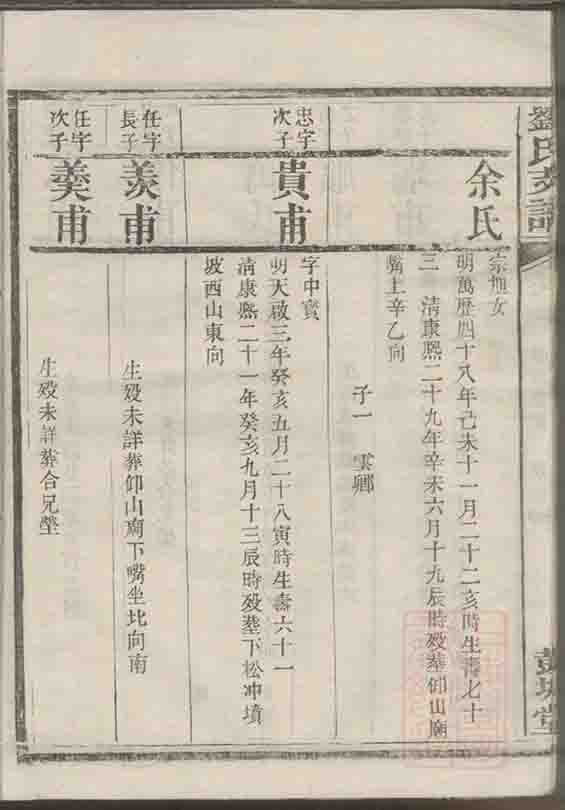 劉氏支譜
彭城堂
余氏
宗旭女
明萬歷四十八年己未十一月二十二亥時生壽七十
三 清康熙二十九年辛未六月十九辰時殁葬仰山廟
嘴上辛乙向
子一 雲卿
忠字
次子
貴甫
字中實
明天啟三年癸亥五月二十八寅時生壽六十一
清康熙二十一年癸亥九月十三辰時殁葬下松冲墳
坡西山東向
任字
長子
羨甫
生殁未詳葬仰山廟下嘴坐北向南
任字
次子
羹甫
生殁未詳葬合兄塋